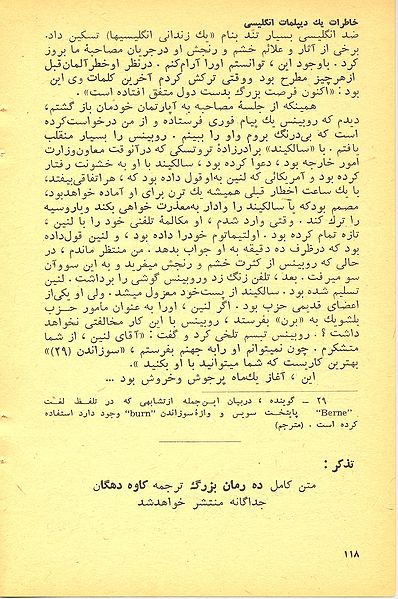 خاطرات یك دیپلمات انگلیسی
ضد انگلیسی بسیار تند بنام «یك زندانی انگلیسیها» تسکین داد.
برخی از آثار و علائم خشم و رنجش او درجریان مصاحبهٔ ما بروز
کرد . باوجود این ، توانستم اورا آرام کنم . درنظر اوخطر آلمان قبل
ازهرچیز مطرح بود ووقتی ترکش کردم آخرین کلمات وی این
بود : «اکنون فرصت بزرگ بدست دول متفق افتاده است» .
همینکه از جلسهٔ مصاحبه به آپارتمان خودمان باز گشتم،
دیدم که روبینس یك پیام فوری فرستاده و از من درخواست‌کرده
است که بی‌درنگ بروم واو را ببینم . روبینس را بسیار منقلب
یافتم . با «سالکیند» برادرزادهٔ تروتسکی که درآنوقت معاون‌وزارت
امور خارجه بود ، دعوا کرده بود ، سالکیند با او به خشونت رفتار
کرده بود و آمریکائی که لنین به‌او قول داده بود که ، هراتفاقی‌بیفتد،
با یك ساعت اخطار قبلی همیشه یك ترن برای او آماده خواهدبود،
مصمم بودکه یا سالکیند را وادار به‌معذرت خواهی بکند ویاروسیه
را ترك کند . وقتی وارد شدم ، او مکالمهٔ تلفنی خود را با لنین ،
تازه تمام کرده بود . اولتیماتوم خودرا داده بود ، و لنین قول‌داده
بود که درظرف ده دقیقه به او جواب بدهد . من منتظر ماندم ، در
حالی که روبینس از کثرت خشم و رنجش میغرید و به این سووآن
سو میرفت . بعد ، تلفن زنگ زد وروبینس گوشی را برداشت . لنین
تسلیم شده بود . سالکیند از پست‌خود معزول میشد . ولی او یکی‌از
اعضای قدیمی حزب بود . اگر لنین ، اورا به عنوان مأمور حــزب
بلشویك به «برن» بفرستد ، روبینس با این کار مخالفتی نخواهد
داشت ؟ . روبینس تبسم تلخی کرد و گفت : «آقای لنین ، از شما
متشکرم . چون نمیتوانم او رابه جهنم بفرستم ، «سوزاندن (۲۹)»
بهترین کاریست که شما میتوانید با او بکنید ».
این ، آغاز یك‌ماه پرجوش وخروش بود ...
۲۹ – گوینده ، دربیان ایــن‌جمله ازتشابهی که در تلفــظ لغــت
"Berne" پایتخــت سویس و واژهٔ سوزاندن "burn" وجود دارد استفاده
کرده است . (مترجم)
تذکر :
متن کامل ده رمان بزرگ ترجمه کاوه دهگان
جداگانه منتشر خواهدشد
۱۱۸